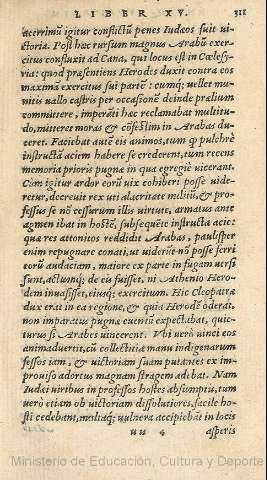 LIBER XV. 311
acerrimũ igitur conflictũ penes Iudæos fuit ui-
ctoria. Post hæc rursum magnus Arabũ exer-
citus confluxit ad Cana, qui locus est in Cœlesy-
ria: quod præsentiens Herodes duxit contra eos
maxima exercitus sui parte: cumq; uellet mu-
nitis uallo castris per occasionē deinde prælium
committere, imperãti hæc reclamabat multitu-
do, mitteret moras & cõfestim in Arabas du-
ceret. Faciebat autē eis animos, tum ꝗ pulchrè
instructã aciem habere se crederent, tum recens
memoria prioris pugnæ in qua egregiè uicerant.
Cum igitur ardor eorũ uix cohiberi posse uide-
retur, decreuit rex uti alacritate militũ, & pro-
fessus se nõ cessurum illis uirtute, armatus ante
agmen ibat in hostē, subsequēte instructa acie:
quæ res attonitos reddidit Arabas, paulisper
enim repugnare conati, ut uiderũt nõ posse ferri
eorũ audaciam, maiore ex parte in fugam uersi
sunt, actumq; de eis fuisset, ni Athenio Hero-
dem inuasisset, eiusq; exercitum. Hic Cleopatræ
dux erat in ea regione, & quia Herodē oderat,
non imparatus pugnæ euentũ expectabat, quie-
turus si Arabes uincerent. Vbi uerò uinci eos
animaduertit, cũ collectitia manu indigenarum
fessos iam, & uictoriam suam putantes ex im-
prouiso adortus magnam stragem adebat. Nam
Iudæi uiribus in professos hostes absumptis, tum
uerò etiam ob uictoriam dissolutiores, facile ho-
sti cedebant, multaq; uulnera accipiebãt in locis
uu 4 asperis
Ministerio de Educación, Cultura y Deporte